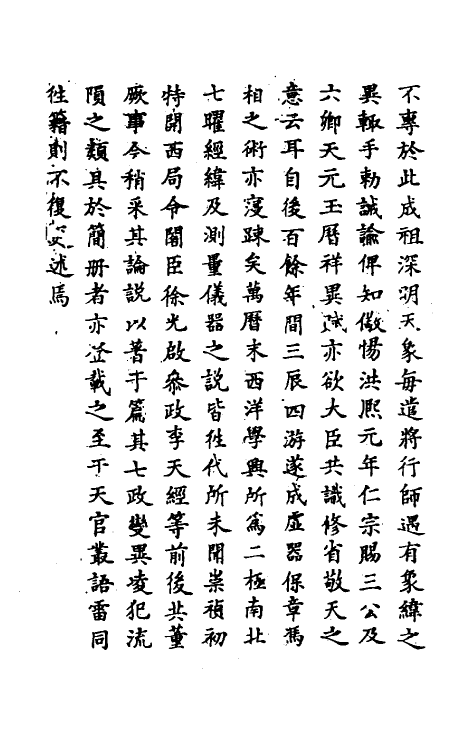 不專於此成祖深明天象每遣將行師遇有象緯之
異輒手勅誡諭俾知儆惕洪熙元年仁宗賜三公及
六卿天元玉曆祥異賦亦欲大臣共識修省敬天之
意云耳自後百餘年間三辰四游遂成虛器保章馮
相之術亦寖踈矣萬曆末西洋學興所爲二極南北
七曜經緯及測量儀器之說皆徃代所未聞崇禎初
特開西局令閣臣徐光啟叅政李天經等前後共董
厥事今稍采其論說以著于篇其七政變異凌犯流
隕之類具於簡册者亦登載之至于天官叢語雷同
徃籍則不復述焉